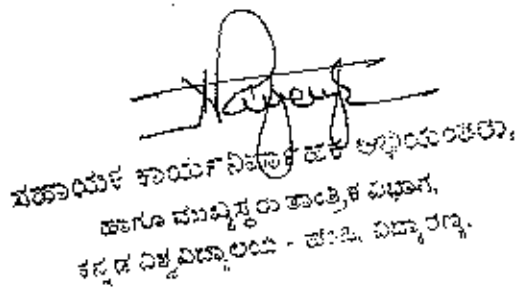 ಸಹಾಯಕ ಕಾರ್ಯನಿರ್ವಾಹಕ ಅಭಿಯಂತರರು,
ಹಾಗೂ ಮುಖ್ಯಸ್ಥರು ತಾಂತ್ರಿಕ ವಿಭಾಗ,
ಕನ್ನಡ ವಿಶ್ವವಿದ್ಯಾಲಯ - ಹಂಪಿ, ವಿದ್ಯಾರಣ್ಯ.